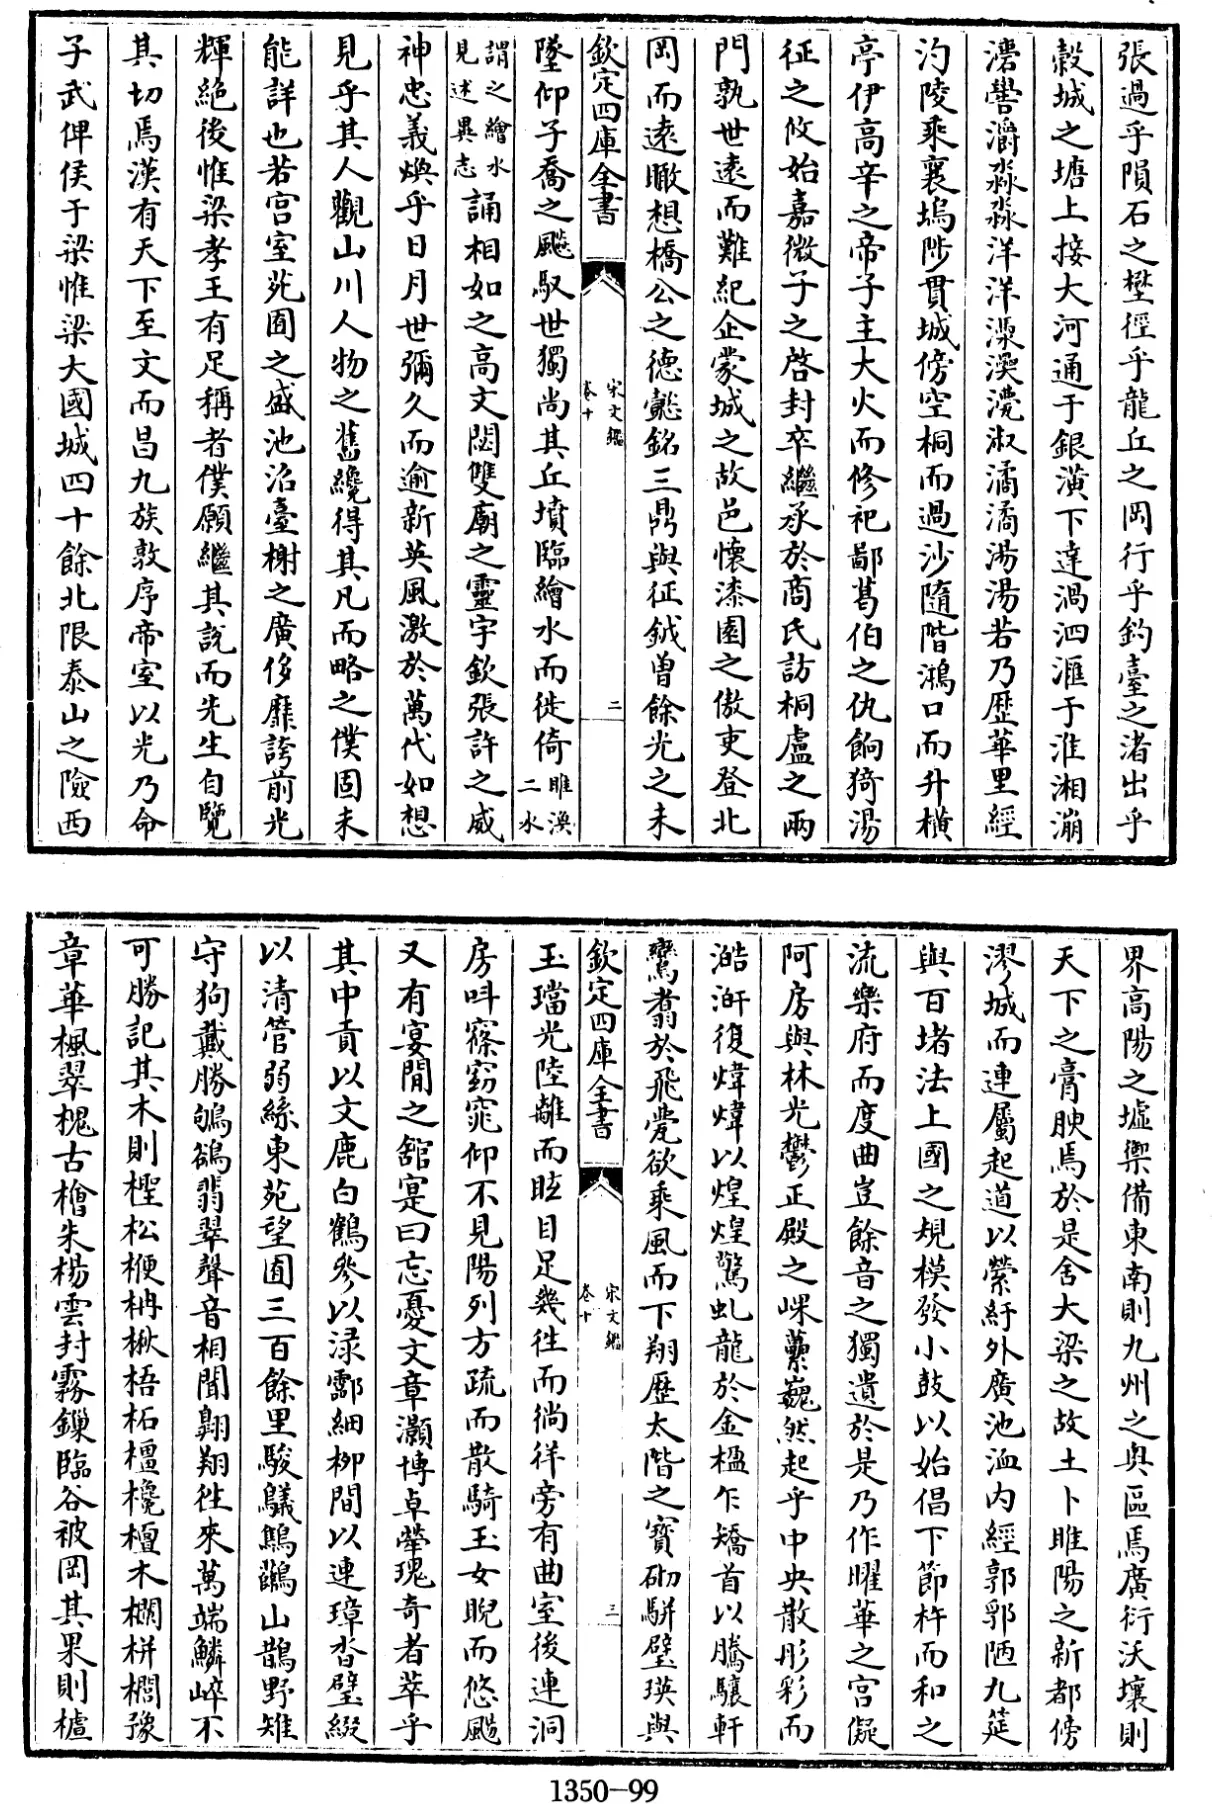 張過乎隕石之壄徑乎龍丘之岡行乎釣臺之渚出乎
穀城之塘上接大河通于銀潢下達渦泗滙于淮湘漰
濃礐灂淼淼洋洋澋漢漭淑潏潏湯湯若乃歴華里經
汋陵乘襄塢陟貫城傍空桐而過沙隨階鴻口而升橫
亭伊高辛之帝子主大火而修祀鄙葛伯之仇餉猗湯
征之攸始嘉微子之啓封卒繼承於商氏訪桐盧之兩
門孰世逺而難紀企蒙城之故邑懷漆園之傲吏登北
岡而逺瞰想橋公之德懿銘三鼎與征鉞曽餘光之未
欽定四庫全書
宋文鑑
卷十
二
墜仰子喬之飈馭世獨尚其丘墳臨繪水而徙倚睢渙二水
謂之繪水見述異志誦相如之高文閟雙廟之靈宇欽張許之威
神忠義煥乎日月世彌久而逾新英風激於萬代如想
見乎其人觀山川人物之舊纔得其凡而略之僕固未
能詳也若宫室苑囿之盛池沼臺榭之廣侈靡誇前光
輝絶後惟梁孝王有足稱者僕願繼其説而先生自覽
其切焉漢有天下至文而昌九族敦序帝室以光乃命
子武俾侯于梁惟梁大國城四十餘北限泰山之險西
界髙陽之墟禦備東南則九州之奥區焉廣衍沃壤則
天下之膏腴焉於是舍大梁之故土卜睢陽之新都傍
漻城而連屬起道以縈紆外廣池洫内經郛郭陋九筵
與百堵法上國之規模發小鼓以始倡下節杵而和之
流樂府而度曲豈餘音之獨遺於是乃作曜華之宫儗
阿房與林光鬱正殿之崍櫐巍然起乎中央散彤彩而
澔汗復煒煒以煌煌驚虬龍於金楹乍矯首以騰驤軒
鸞翥於飛甍欲乘風而下翔歴太階之寳砌駢璧瑛與
欽定四庫全書
宋文鑑
卷十
三
玉璫光陸離而眩目足幾往而徜徉旁有曲室後連洞
房呌窱窈窕仰不見陽列方疏而散騎玉女睨而悠颺
又有宴閒之舘寔曰忘憂文章灝博卓犖瑰奇者萃乎
其中賁以文鹿白鶴參以渌酃細栁間以連璋沓璧綴
以清管弱絲東苑望囿三百餘里駿鸃鷀鸐山鵲野雉
守狗戴勝鴝鵒翡翠聲音相聞翺翔往來萬端鱗崪不
可勝記其木則檉松楩枏楸梧柘橿欃檀木欄栟櫚豫
章華楓翠槐古檜朱楊雲封霧鏁臨谷被岡其果則樝
1350—99